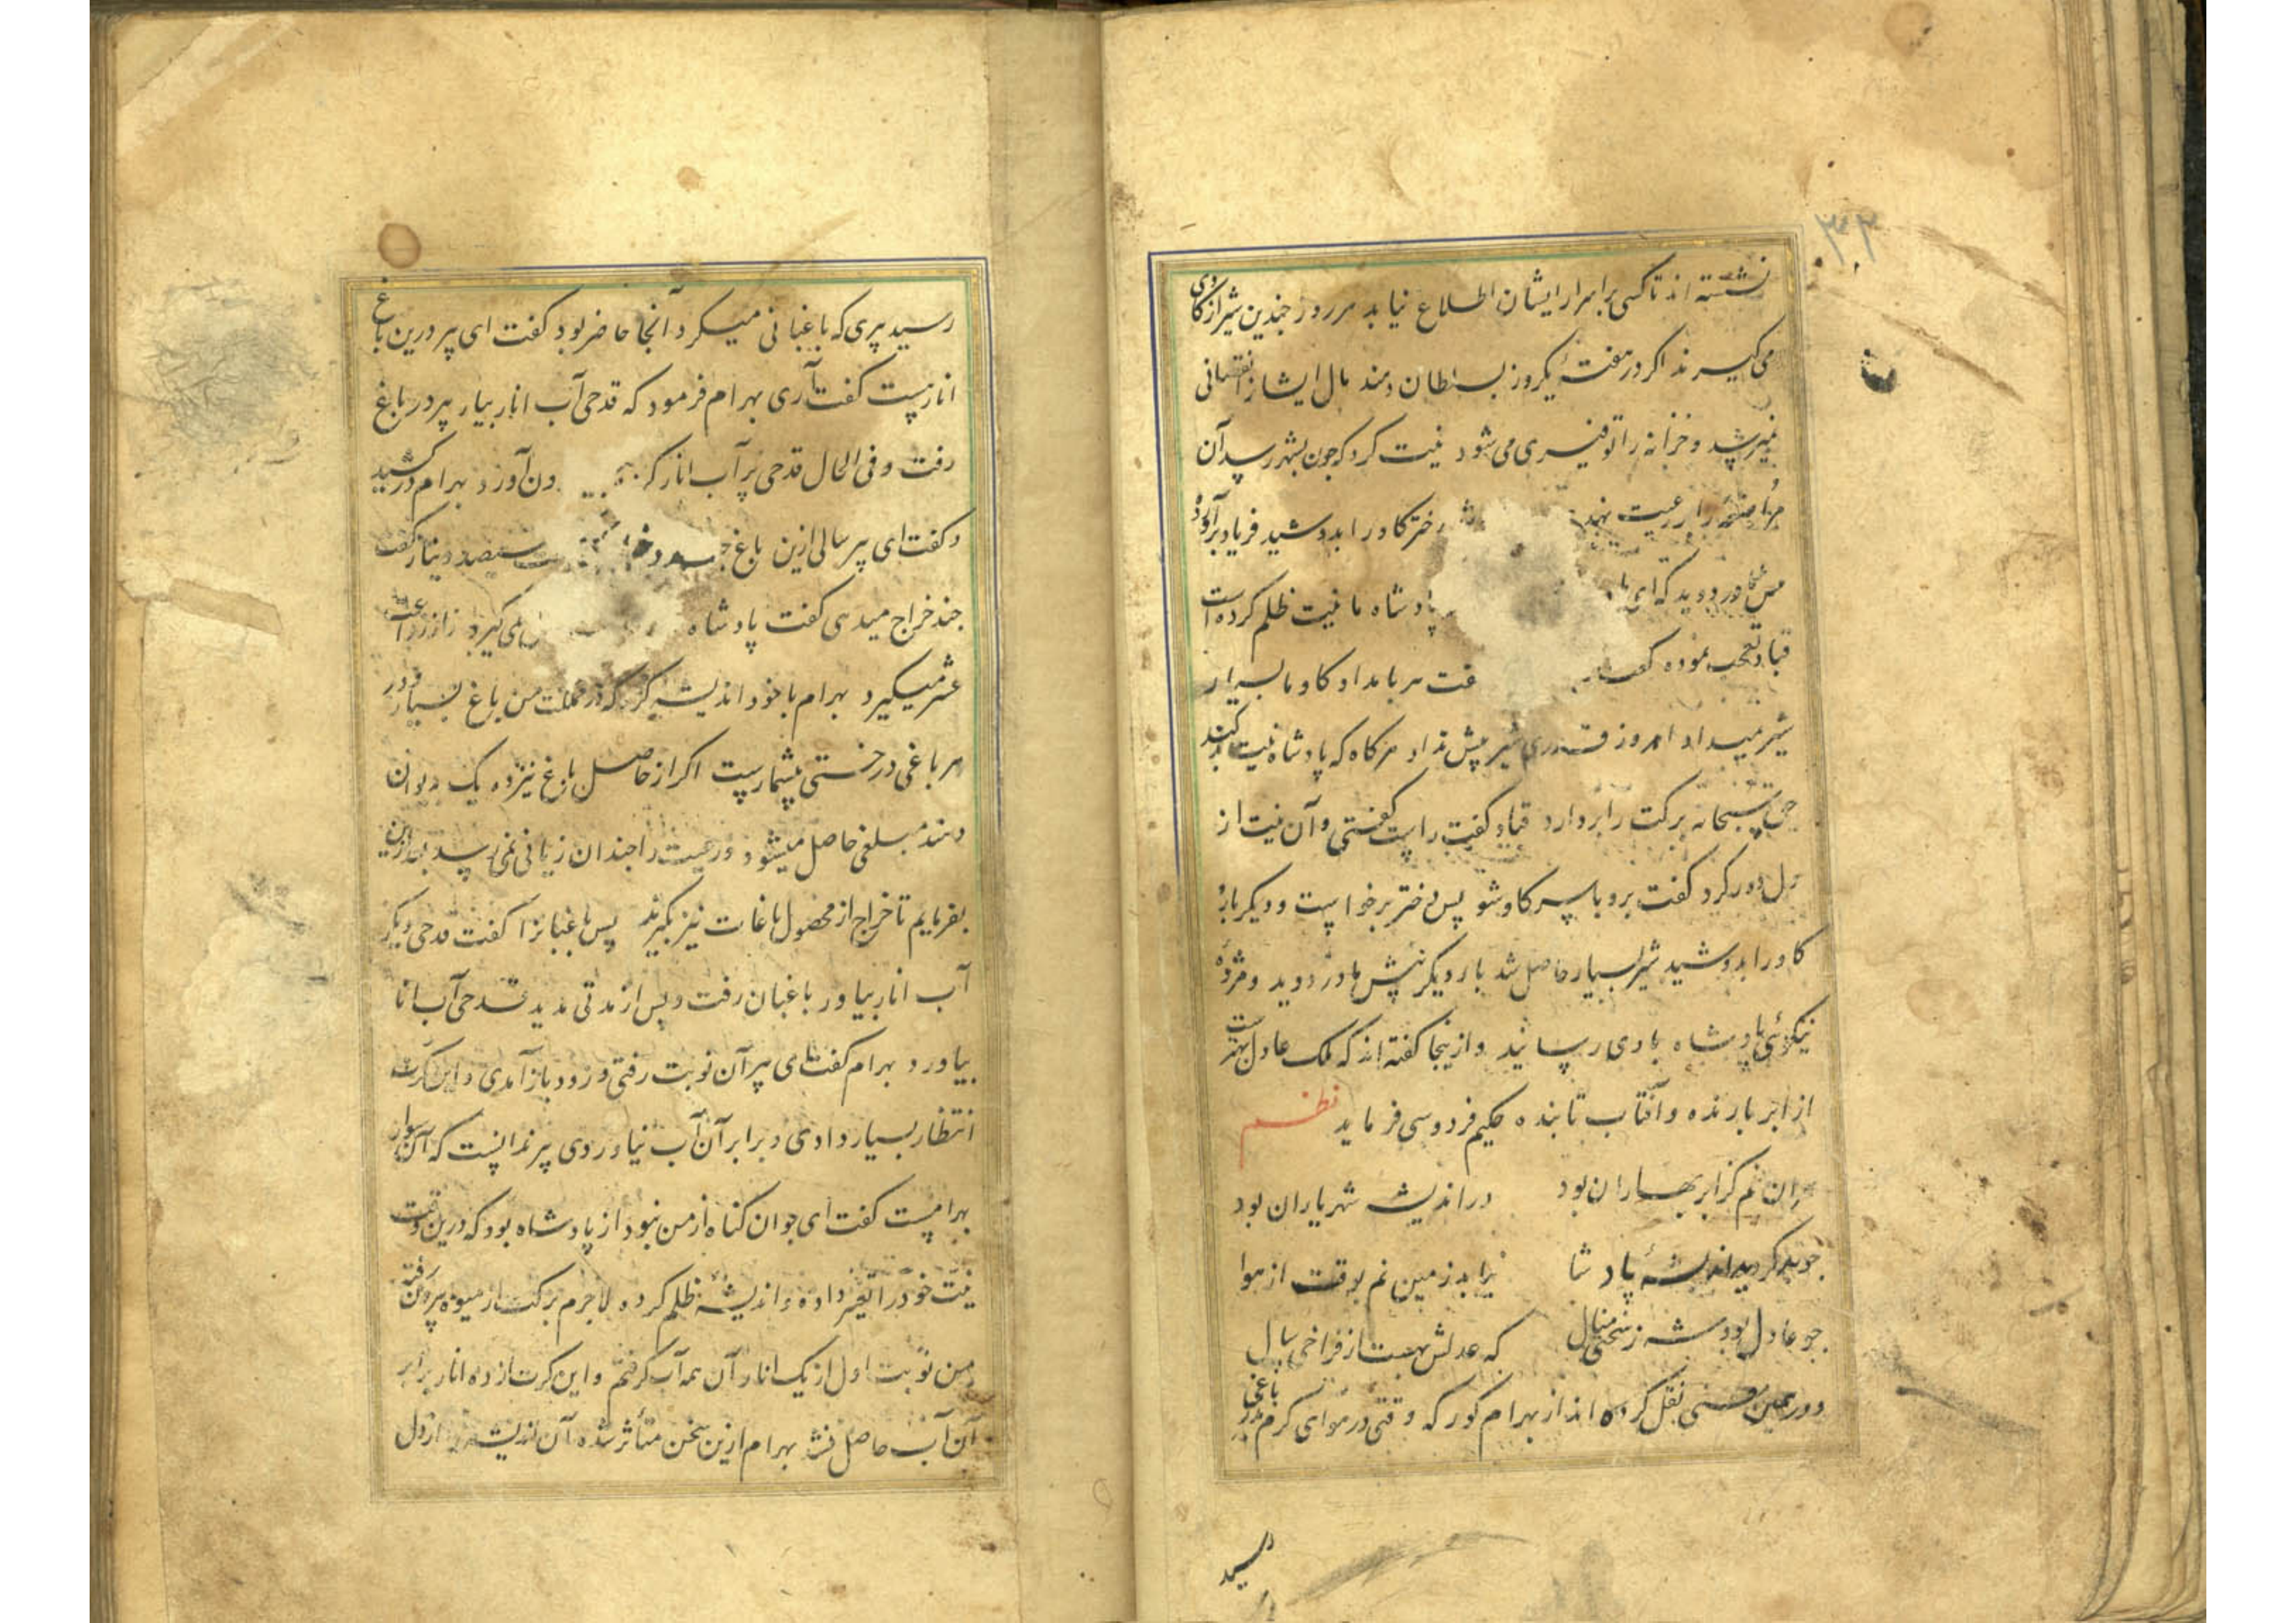 ۳۲
نشسته اند تا کسی بر اسرار ایشان اطلاع نیابد هر روز چندین شیر از گاوی
می گیرند اگر در هفتهٔ یکروز بسلطان دهند مال ایشانرا نقصانی
نمیرسد و خزانه را توفیری می شود نیت کرد که چون بشهر رسد آن
را بر رعیت نهد دختر گاو را بدوشید فریاد برآورد
مادر دوید که ای پادشاه ما نیت ظلم کرده است
قباد تعجب نموده گفت هر بامداد گاو ما بسیار
شیر میداد امروز قدری شیر بیش نداد هرگاه که پادشاه نیت بد کند
حق سبحانه برکت را بردارد قباد گفت راست گفتی و آن نیت از
دل دور کرد گفت برو با سر گاو شو پس دختر برخواست و دیگر باره
گاو را بدوشید شیر بسیار حاصل شد بار دیگر پیش مادر دوید و مژده
نیکوئی پادشاه بادی رسانید و ازینجا گفته اند که ملک عادل بهترست
از ابر بارنده و آفتاب تابنده حکیم فردوسی فرماید نظم
هران نم کز ابر بهاران بود در اندیشه شهریاران بود
چو بد گردد اندیشهٔ پادشا نیابد زمین نم بوقت از هوا
چو عادل بود شه ز سختی منال که عدلش بهست از فراخی سال
و در همین معنی نقل کرده اند از بهرام گور که وقتی در هوای گرم بدر باغی
رسید
رسید پیری که باغبانی میکرد آنجا حاضر بود گفت ای پیر درین باغ
انار هست گفت آری بهرام فرمود که قدحی آب انار بیار پیر در باغ
رفت و فی الحال قدحی پر آب انار کرد بیرون آورد بهرام درکشید
و گفت ای پیر سالی ازین باغ سیصد دینار گفت
چند خراج میدهی گفت پادشاه نمی گیرد از زراعت
عشر میگیرد بهرام با خود اندیشه کرد که در مملکت من باغ بسیار و در
هر باغی درختی بیشمارست اگر از حاصل باغ نیز ده یک دیوان
دهند مبلغی حاصل میشود و رعیت را چندان زیانی نمی رسد بعد ازین
بفرمایم تا خراج از محصول باغات نیز بگیرند پس باغبانرا گفت قدحی دیگر
آب انار بیاور باغبان رفت و پس از مدتی مدید قدحی آب انار
بیاورد بهرام گفت ای پیر آن نوبت رفتی و زود باز آمدی و این کرت
انتظار بسیار دادی و برابر آن آب نیاوردی پیر ندانست که آن سوار
بهرامست گفت ای جوان گناه از من نبود از پادشاه بود که درین وقت
نیت خود را تغییر داده و اندیشهٔ ظلم کرده لاجرم برکت از میوه بیرون رفته
من نوبت اول از یک انار آن همه آب گرفتم و این کرت از ده انار برابر
آن آب حاصل نشد بهرام ازین سخن متأثر شده آن اندیشه از دل